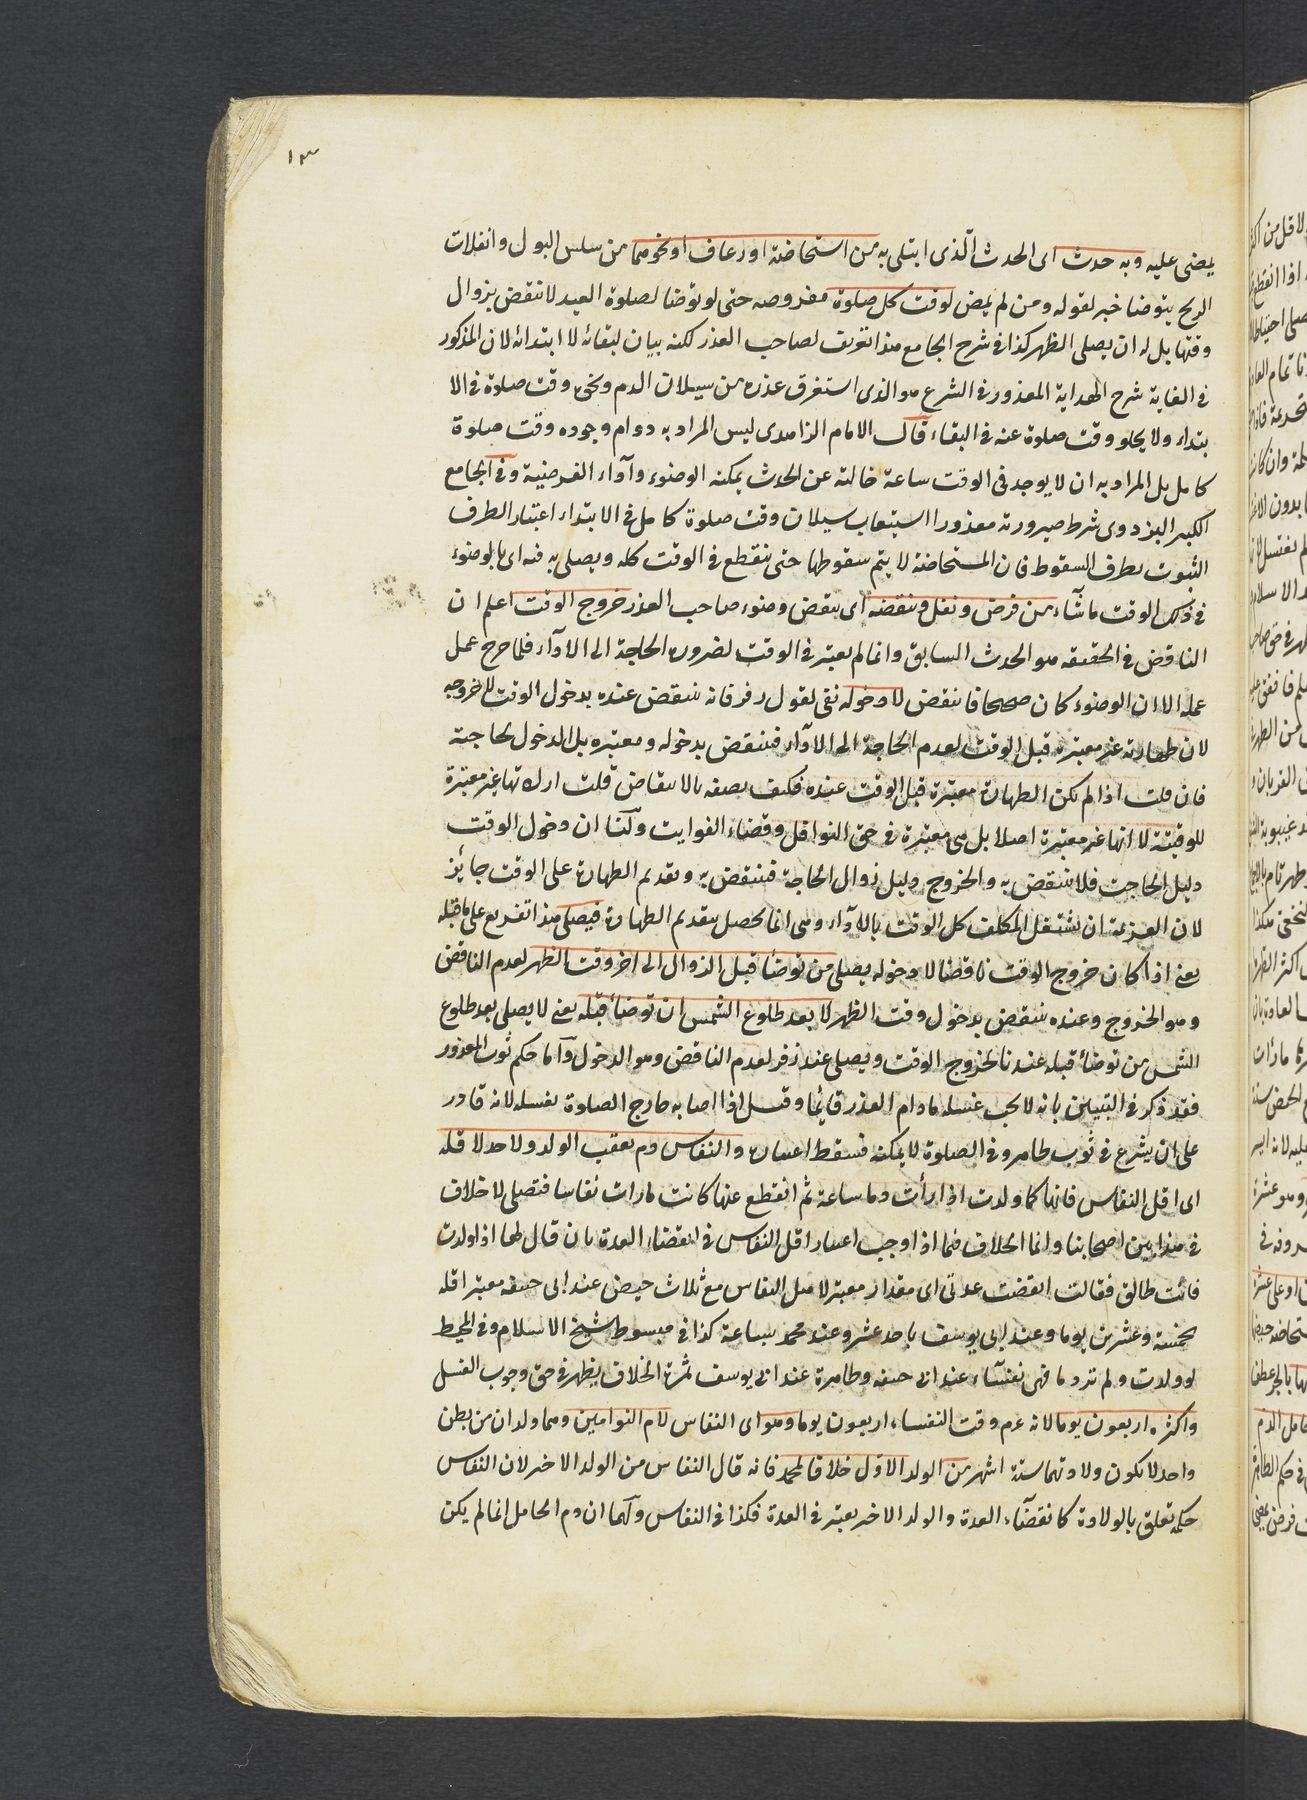 ١٣
يمضى عليه وبه حدث اى الحدث الذى ابتلى به من استحاضة او رعاف او نحوهما من سلس البول وانفلات
الريح يتوضا خبر لقوله ومن لم يمض لوقت كل صلوة مفروضه حتى لو توضا لصلوة العيد لا ينقض بزوال
وقتها بل له ان يصلى الظهر كذا فى شرح الجامع هذا تعريف لصاحب العذر لكنه بيان لبقائه لا ابتدائه لان المذكور
فى الغاية شرح الهداية المعذور فى الشرع هو الذى استغرق عذره من سيلان الدم ونحوه وقت صلوة فى الا
بتداء ولا يخلو وقت صلوة عنه فى البقاء قال الامام الزاهدى ليس المراد به دوام وجوده وقت صلوة
كامل بل المراد به ان لا يوجد فى الوقت ساعة خالية عن الحدث يمكنه الوضوء وآداء الفرضية وفى الجامع
الكبير البزدوى شرط صيرورته معذورا استيعاب سيلان وقت صلوة كامل فى الابتداء اعتبار الطرف
الثبوت بطرف السقوط فان المستحاضة لا يتم سقوطها حتى ينقطع فى الوقت كله ويصلى به فيه اى بالوضوء
فى ذلك الوقت ماشآء من فرض ونفل وينقضه اى ينقض وضوء صاحب العذر خروج الوقت اعلم ان
الناقض فى الحقيقه هو الحدث السابق وانما لم يعتبر فى الوقت لضرورة الحاجة الى الاداء فلما خرج عمل
عمله الا ان الوضوء كان صحيحا فانتقض لا دخوله نفى لقول زفر فانه ينتقض عنده بدخول الوقت لا بخروجه
لان طهارته غير معتبره قبل الوقت لعدم الحاجة الى الاداء فينتقض بدخوله ومعتبره بل الدخول لحاجته
فان قلت اذا لم يكن الطهارة معتبرة قبل الوقت عنده فكيف يصفه بالانتقاض قلت اراد انها غير معتبرة
للوقتية لا انها غير معتبرة اصلا بل هى معتبرة فى حق النوافل وقضاء الفوايت ولنا ان دخول الوقت
دليل الحاجت فلا ينتقض به والخروج دليل زوال الحاجة فينتقض به وتقديم الطهارة على الوقت جايز
لان العزيمة ان يشتغل المكلف كل الوقت بالاداء وهى انما يحصل بتقديم الطهارة فيصلى هذا تفريع على ما قبله
يعنى اذا كان خروج الوقت ناقضا لا دخوله يصلى من توضأ قبل الزوال الى اخر وقت الظهر لعدم الناقض
وهو الخروج وعنده ينتقض بدخول وقت الظهر لا بعد طلوع الشمس ان توضأ قبله يعنى لا يصلى بعد طلوع
الشمس من توضأ قبله عندنا لخروج الوقت ويصلى عند زفر لعدم الناقض وهو الدخول واما حكم ثوب المعذور
فقد ذكر فى التبيين بانه لا يجب غسله مادام العذر قائما وقيل اذا اصابه خارج الصلوة يغسله لانه قادر
على ان يشرع فى ثوب طاهر وفى الصلوة لا يمكنه فسقط اعتباره والنفاس دم يعقب الولد ولا حد لاقله
اى اقل النفاس فانها كما ولدت اذا رأت دما ساعة ثم انقطع عنها كانت ما رات نفاسا فتصلى لا خلاف
فى هذا بين اصحابنا وانما الخلاف فيما اذا وجب اعتبار اقل النفاس فى انقضاء العدة بان قال لها اذا ولدت
فانت طالق فقالت انقضت عدتى اى مقدار معتبر لاقل النفاس مع ثلاث حيض عند ابى حنيفه معتبر اقله
بخمسة وعشرين يوما وعند ابى يوسف باحد عشر وعند محمد بساعة كذا فى مبسوط شيخ الاسلام وفى المحيط
لو ولدت ولم ترد ما فهى نفسآء عند ابى حنيفه وطاهرة عند ابى يوسف ثمرة الخلاف يظهر فى حق وجوب الغسل
واكثره اربعون يوما لانه عم وقت النفساء اربعون يوما وهو اى النفاس لام التوامين وهما ولدان من بطن
واحد لا يكون ولادتهما ستة اشهر من الولد الاول خلافا لمحمد فانه قال النفاس من الولد الاخر لان النفاس
حكم تعلق بالولادة كانقضآء العدة والولد الاخر يعتبر فى العدة فكذا فى النفاس ولهما ان دم الحامل انما لم يكن